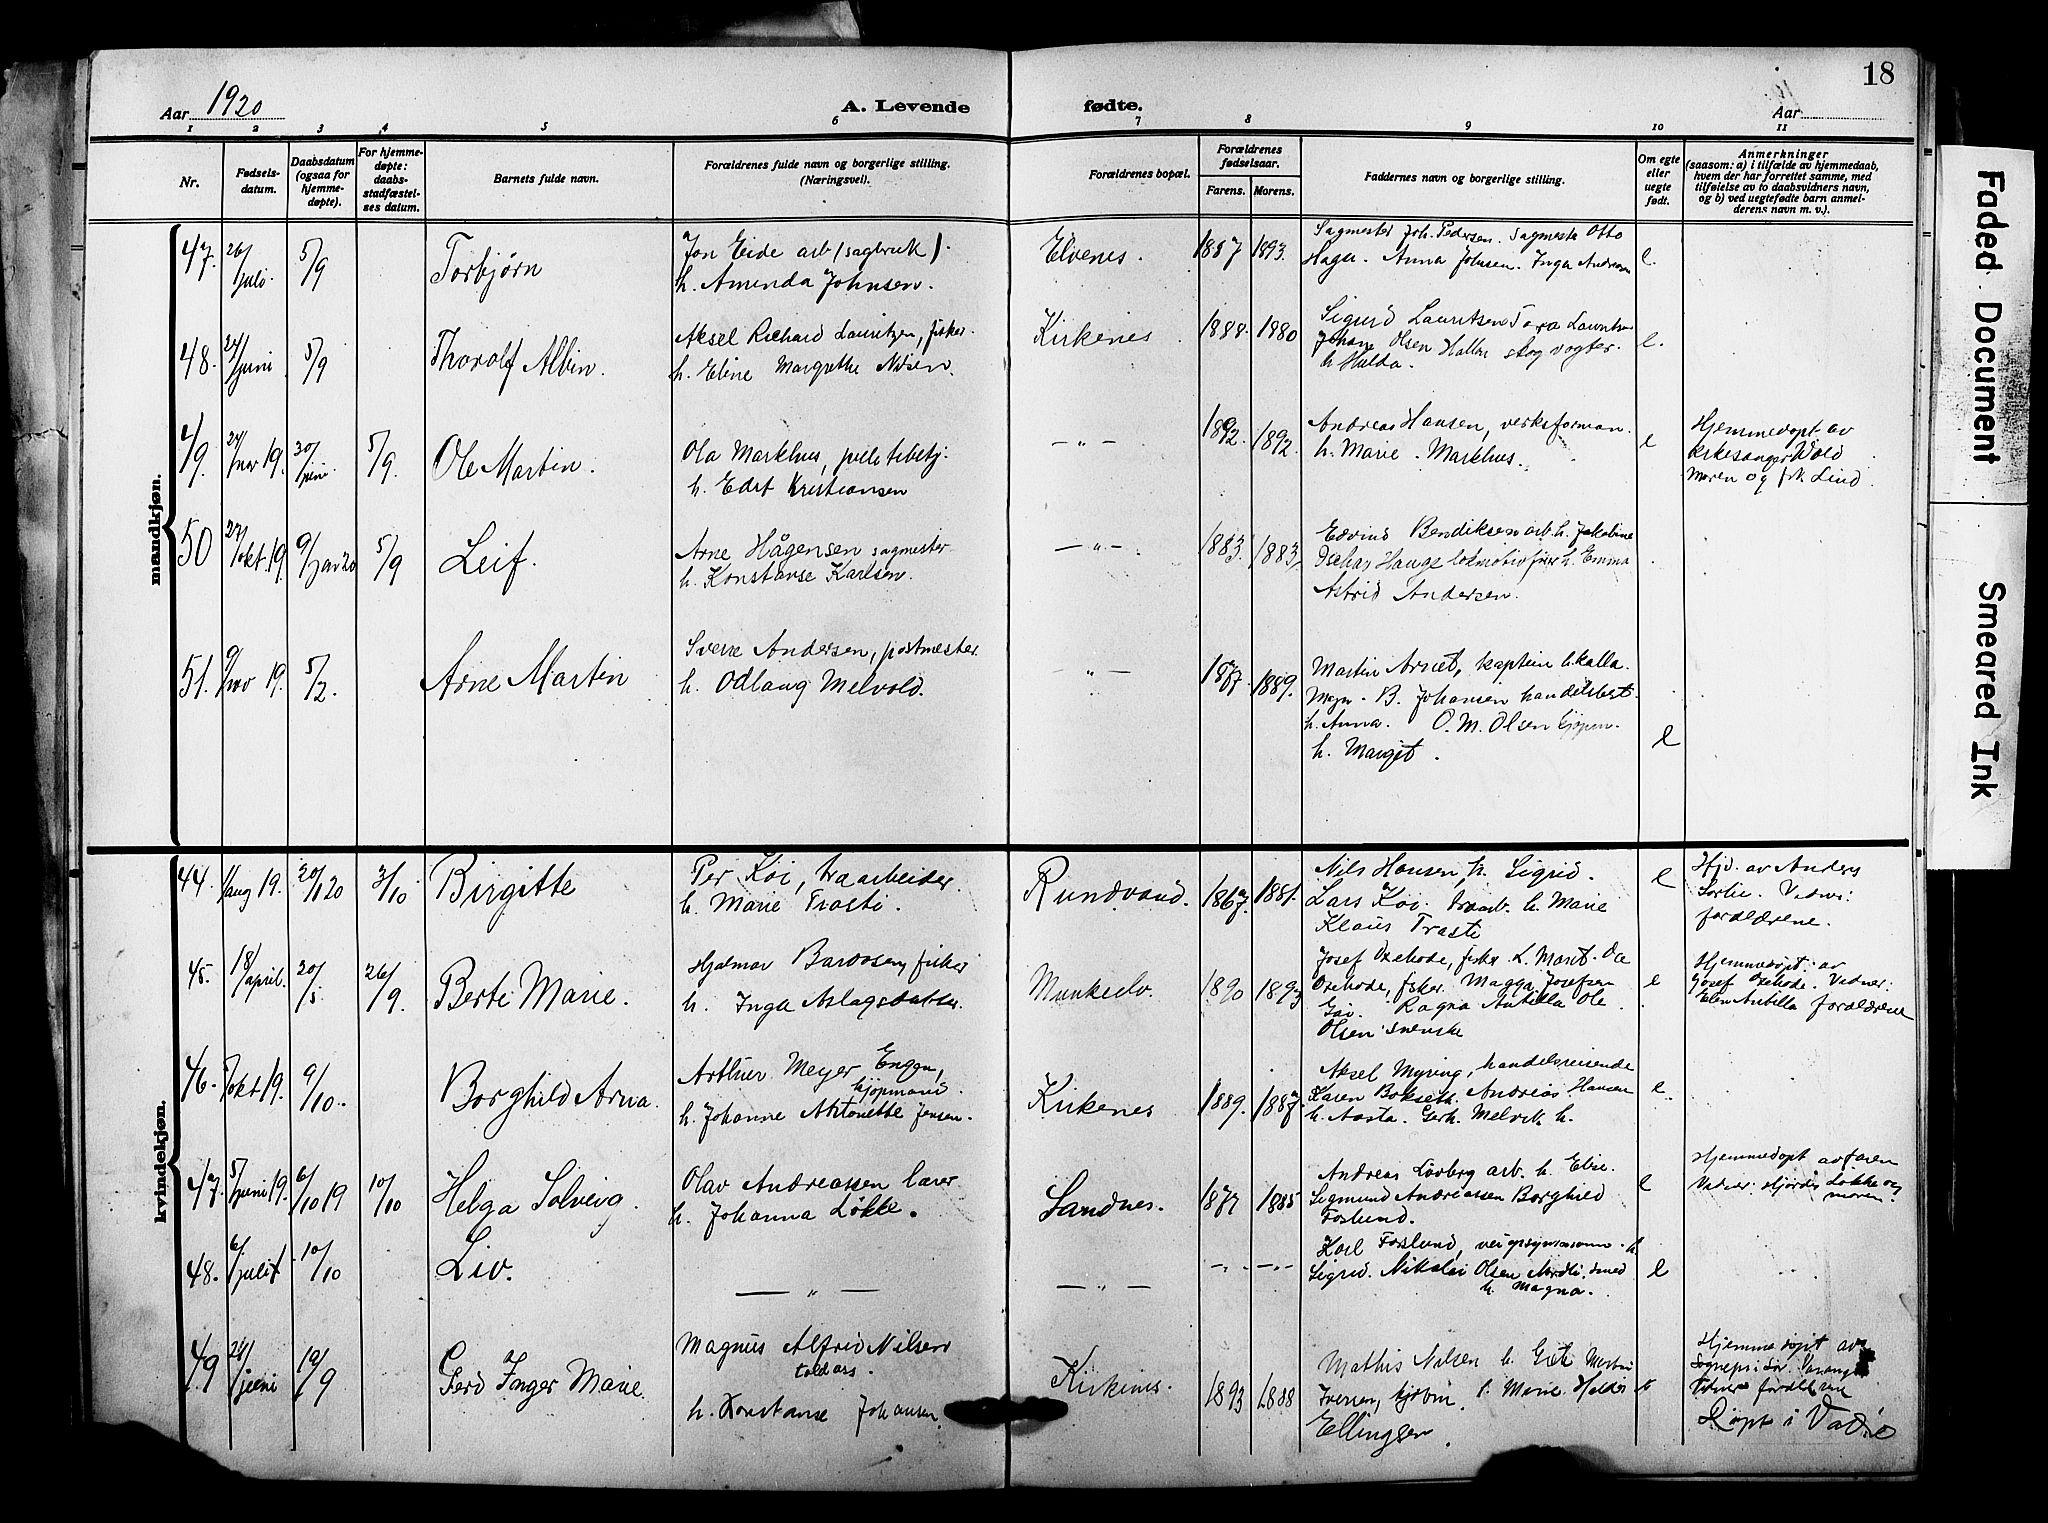 18
Aar 1920
A. Levende
fødte.
Aar
1 2 3 4 5 6 7 8 9 10 11
Nr.
Fødsels-
datum.
Daabsdatum
(ogsaa for
hjemme-
døpte).
For hjemme-
døpte:
daabs-
stadfæstel-
ses datum.
Barnets fulde navn.
Forældrenes fulde navn og borgerlige stilling.
(Næringsvei).
Forældrenes bopæl.
Forældrenes
fødselsaar.
Farens. Morens.
Faddernes navn og borgerlige stilling.
Om egte
eller
uegte
født.
Anmerkninger
(saasom: a) i tilfælde av hjemmedaab,
hvem der har forrettet samme, med
tilføielse av to daabsvidners navn,
og b) ved uegtefødte barn anmel-
derens navn m. v.).
mandkjøn.
47. 26/juli. 5/9 Torbjørn
Jon Eide arb (sagbruk).
h. Aminda Johnsen.
Elvenes. 1887 1893.
Sagmester Joh. Pedersen. Sagmester Otto
Hager. Anna Johnsen. Inga Andresen
e.
48. 24/juni 5/9 Thorolf Albin.
Aksel Richard Lauritzen, fisker.
h. Eline Margrethe Nilsen.
Kirkenes 1888. 1880
Sigurd Lauritsen Tora
Johan Olsen skogvogter.
h Hulda.
e.
49. 24/nov 19. 30/juni 5/9. Ole Martin.
Ola Markhus, politibetj.
h. Edit Kristiansen
— " — 1892. 1892.
Andreas Hansen, verksforman.
h. Marie. Markhus.
e
Hjemmedøpt av
kirkesanger Wold
Moren og frk Lind.
50 27/okt. 19. 9/jan 20 5/9 Leif.
Arne Hågensen sagmester
h. Konstanse Karlsen.
— " — 1883. 1883,
Edvind Bendiksen arb. h. Jakobine
Oschar Hauge lokmotivfører h. Emma
Astrid Andersen.
51. 9/nov 19. 5/2. Arne Martin
Sverre Andersen, postmester
h. Odlaug Melvold.
— " — 1877. 1889.
Martin kaptein h.
B. Johansen handelsbest.
h. Anna. O. M. Olsen kjøpm.
h. Margit.
e
kvindekjøn.
44. 1/aug 19. 20/1 20 3/10 Birgitte
Per Koi, traarbeider.
h. Marie Trasti.
Rundvand. 1867. 1881.
Nils Hansen, h. Sigrid.
Lars Koi. h. Marie
Klaus Trasti
e
Hjd. av Anders
Vidner:
forældrene.
45. 18/april. 20/5 26/9. Berte Marie.
Hjalmar fisker
h. Inga Aslagsdatter.
Munkelv. 1890 1893
Josef Oxehode, fisker h. Marit. Ole
Oxehode, fisker. Magga Josefsen
Ragna Antilla Ole
Olsen svenske
e
Hjemmedøpt: av
Josef Oxehode. Vidner:
Elen Antilla forældrene
46. 7/okt 19. 9/10. Borghild Arna.
Arthur Meyer Enggu,
kjøpmand.
h. Johanne Antonette Jensen.
Kirkenes 1889. 1887.
Aksel Myring, handelsreisende
Karen Andreas Hansen
h. Aasta. Gerh. Melvik h.
e.
47. 5/juni 19. 6/10 19 10/10 Helga Solveig.
Olav Andreassen lærer
h. Johanna Løkke.
Sandnes. 1877 1885
Andreas Lovberg arb. h. Elise.
Sigmund Andreassen Borghild
Foslund.
e
Hjemmedøpt av faren
Vidner: Hjørdis Løkke og
moren.
48. 6/juli 10/10 Liv.
— " —
— " — — " — — " —
Karl Foslund, h
Sigrid. Nikolai Olsen Nordli. smed
h. Magna.
e
49 24/juni 19/9 Gerd Inger Marie
Magnus Alfrid Nilsen
toldass.
h. Konstanse Johansen
Kirkenes. 1893 1888
Mathis Nilsen h.
Iversen, h. Marie
Ellingsen.
Hjemmedøpt av
Sognepr. i Sør Varanger
Vidner forældrene
Døpt i Vadsø
Faded Document
Smeared Ink